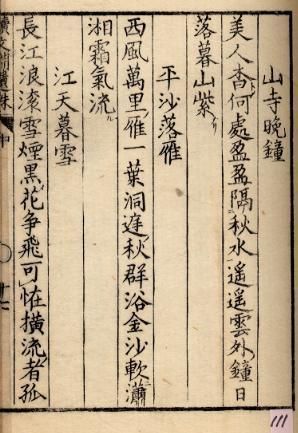 山寺晩鐘
美人杳何處盈盈隔秋水遥遥雲外鐘日
落暮山紫
平沙落雁
西風萬里雁一葉洞庭秋群浴金沙軟瀟
湘霜氣流
江天暮雪
長江浪滚雪煙黒花争飛可恠横流者孤
111